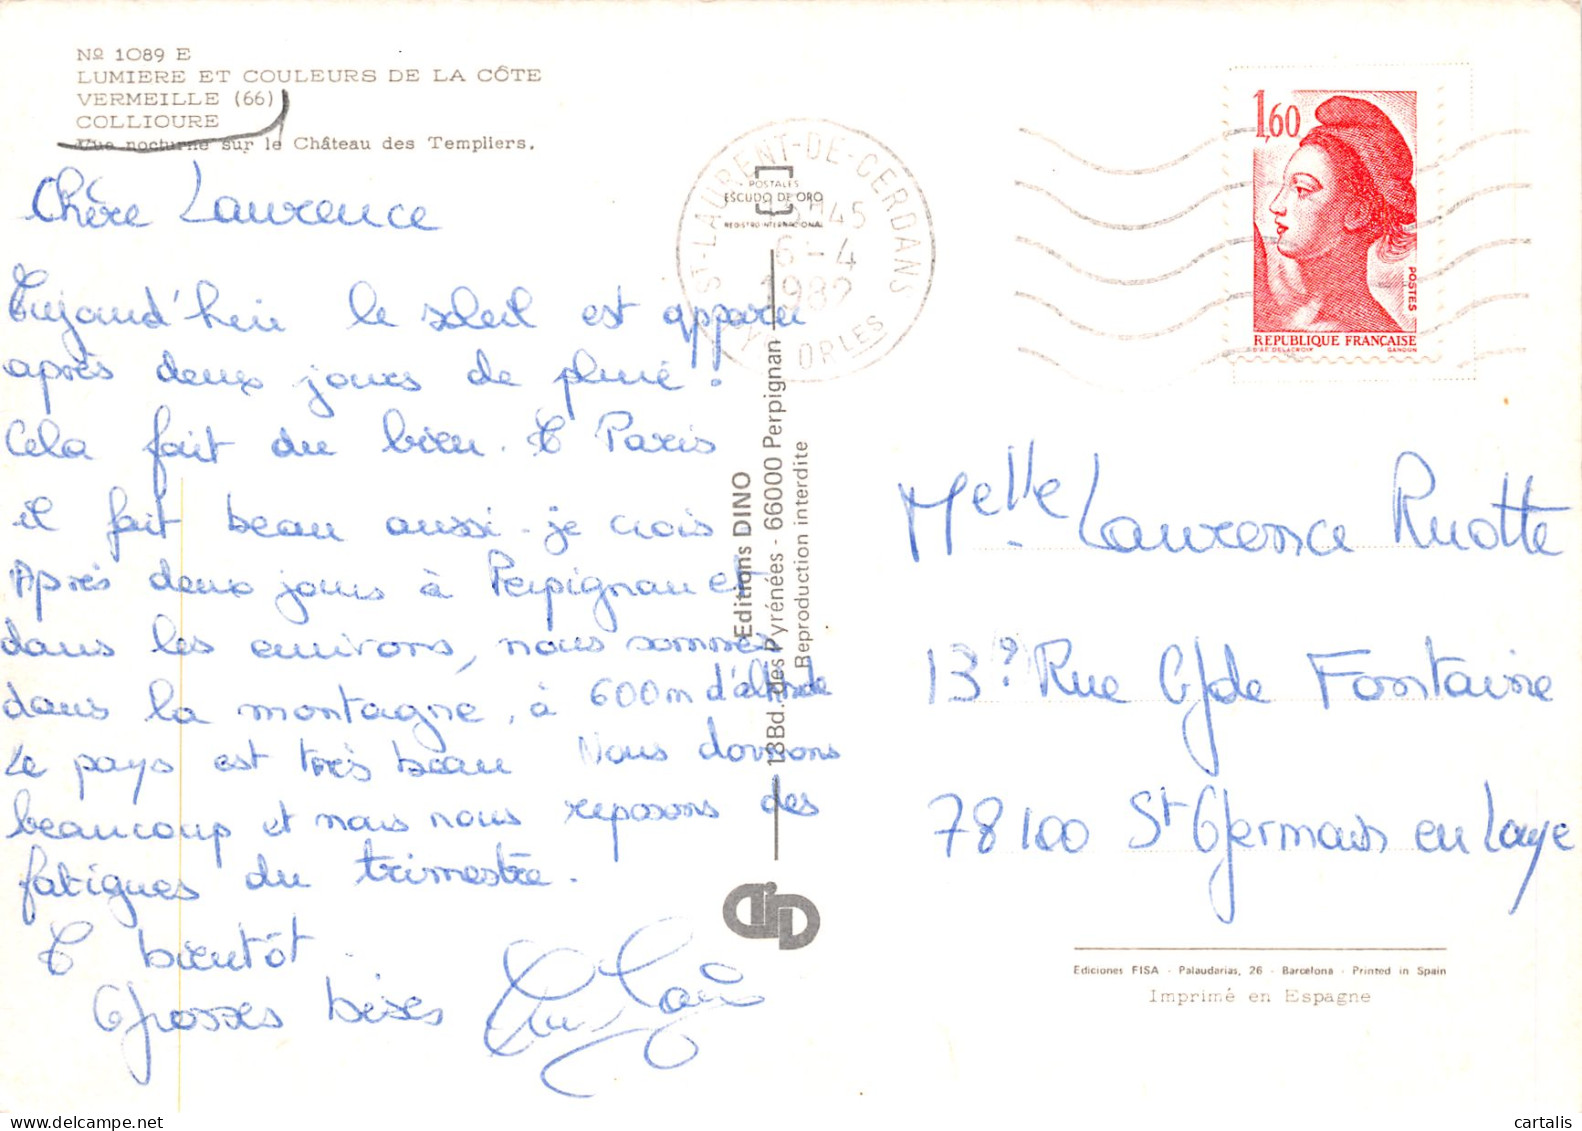 Nº 1089 E
LUMIERE ET COULEURS DE LA CÔTE
VERMEILLE (66)
COLLIOURE
Vue nocturne sur le Château des Templiers.
Chère Laurence
Aujourd'hui le soleil est apparu
après deux jours de pluie !
Cela fait du bien. A Paris
il fait beau aussi je crois
Après deux jours à Perpignan et
dans les environs, nous sommes
dans la montagne, à 600m d'altitude
Le pays est très beau Nous dormons
beaucoup et nous nous reposons des
fatigues du trimestre.
A bientôt
Grosses bises
POSTALES
ESCUDO DE ORO
REGISTRO INTERNACIONAL
ST-LAURENT-DE-CERDANS
45
6-4
1982
PYR. ORLES
Editions DINO
13 Bd. des Pyrénées - 66000 Perpignan
Reproduction interdite
1,60
POSTES
REPUBLIQUE FRANÇAISE
D'AP. DELACROIX GANDON
Melle Laurence Ruotte
13 Rue Gde Fontaine
78100 St Germain en Laye
Ediciones FISA - Palaudarias, 26 - Barcelona - Printed in Spain
Imprimé en Espagne
cartalis